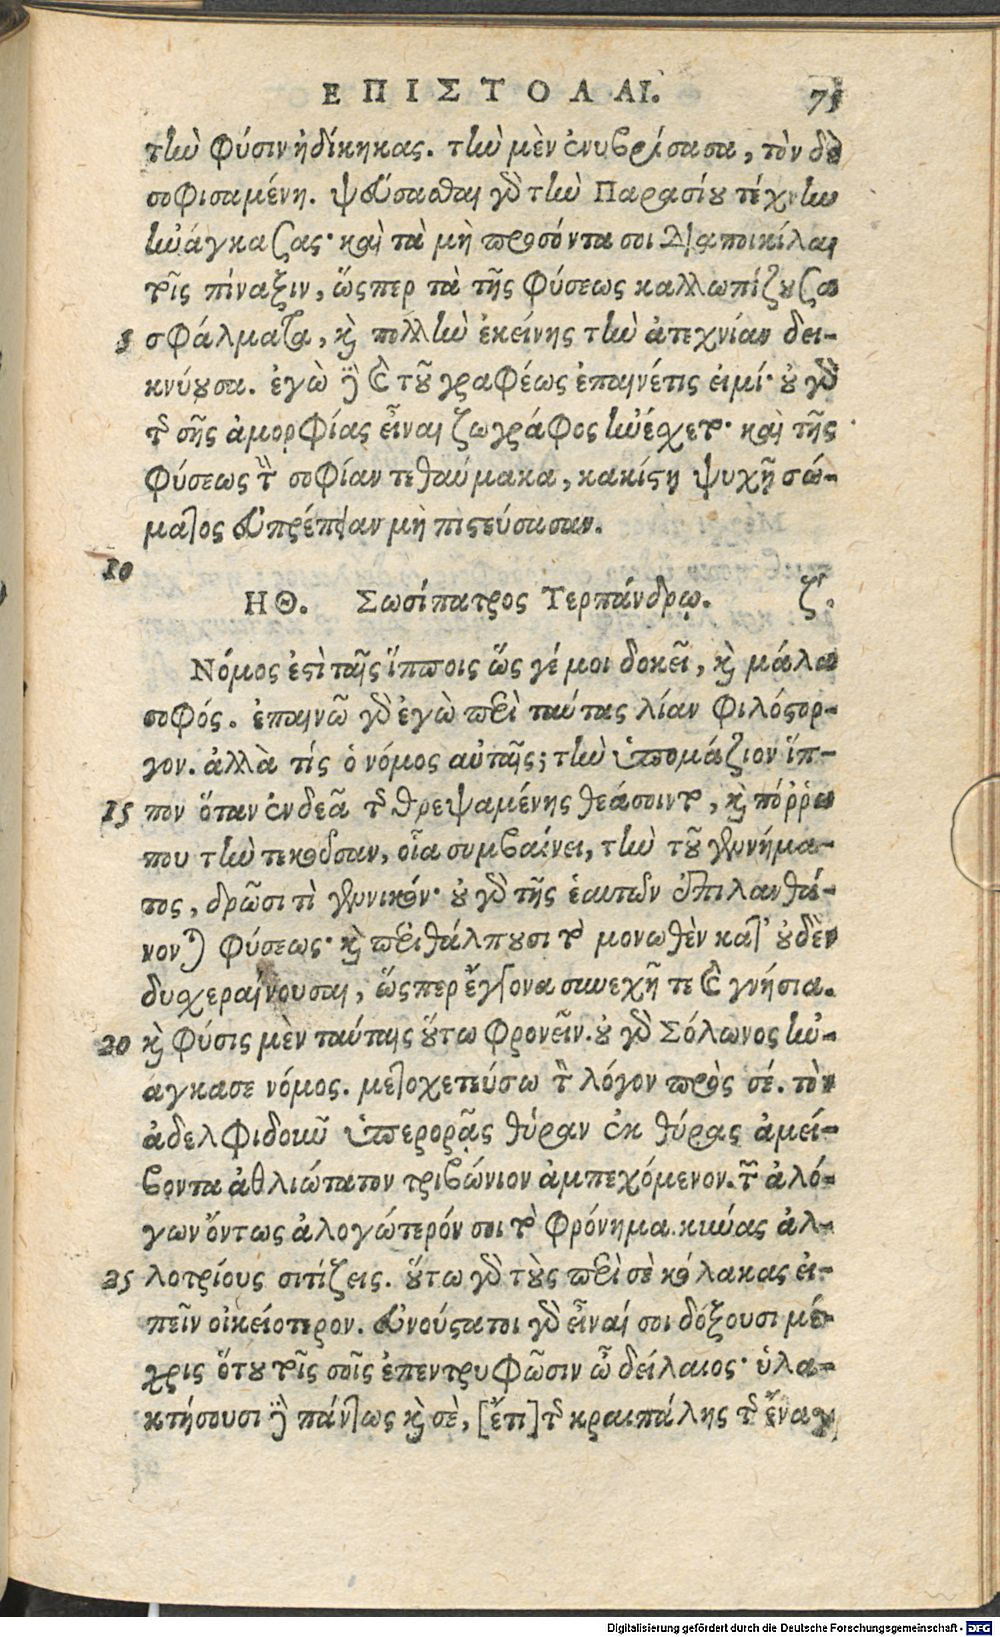 ΕΠΙΣΤΟΛΑΙ. 75
τὴν φύσιν ἠδίκηκας. τὴν μὲν ἐνυβρίσασα, τὸν δὲ
σοφισαμένη. ψεύσασθαι γὰρ τὴν Παρασίου τέχνην
ἠνάγκαζας· καὶ τὰ μὴ προσόντα σοι διαποικίλαι
τοῖς πίναξιν, ὥσπερ τὰ τῆς φύσεως καλλωπίζουσα
5 σφάλματα, καὶ πολλὴν ἐκείνης τὴν ἀτεχνίαν δει-
κνύουσα. ἐγὼ δὲ καὶ τοῦ γραφέως ἐπαινέτις εἰμί· οὐ γὰρ
τῆς σῆς ἀμορφίας εἶναι ζωγράφος ἠνέχετο· καὶ τῆς
φύσεως τὴν σοφίαν τεθαύμακα, κακίστῃ ψυχῇ σώ-
ματος εὐπρέπειαν μὴ πιστεύσασαν.
10
ΗΘ. Σωσίπατρος Τερπάνδρῳ. ζ.
Νόμος ἐστὶ ταῖς ἵπποις ὥς γέ μοι δοκεῖ, καὶ μάλα
σοφός. ἐπαινῶ γὰρ ἐγὼ περὶ ταύτας λίαν φιλόστορ-
γον. ἀλλὰ τίς ὁ νόμος αὐταῖς; τὴν ὑπομάζιον ἵπ-
15 πον ὅταν ἐνδεᾶ τῆς θρεψαμένης θεάσοιντο, καὶ πόῤῥω
που τὴν τεκοῦσαν, οἷα συμβαίνει, τὴν τοῦ γεννήμα-
τος, δρῶσι τὶ γεννικόν· οὐ γὰρ τῆς ἑαυτῶν ἐπιλανθά-
νονται φύσεως· καὶ περιθάλπουσι τὸ μονωθὲν κατ' οὐδὲν
δυχεραίνουσαι, ὥσπερ ἔγγονα συνεχῆ τε καὶ γνήσια.
20 καὶ φύσις μὲν ταύταις οὕτω φρονεῖν. οὐ γὰρ Σόλωνος ἠν-
άγκασε νόμος. μετοχετεύσω τὸν λόγον πρὸς σέ. τὸν
ἀδελφιδοῦν ὑπερορᾷς θύραν ἐκ θύρας ἀμεί-
βοντα ἀθλιώτατον τριβώνιον ἀμπεχόμενον. τῶν ἀλό-
γων ὄντως ἀλογώτερόν σοι τὸ φρόνημα. κύνας ἀλ-
25 λοτρίους σιτίζεις. οὕτω γὰρ τοὺς περὶ σὲ κόλακας εἰ-
πεῖν οἰκειότερον. εὐνούστατοι γὰρ εἶναί σοι δόξουσι μέ-
χρις ὅτου τοῖς σοῖς ἐπεντρυφῶσιν ὦ δείλαιος· ὑλα-
κτήσουσι δὲ πάντως καὶ σὲ, [ἔτι] τῆς κραιπάλης τῆς ἔναγ